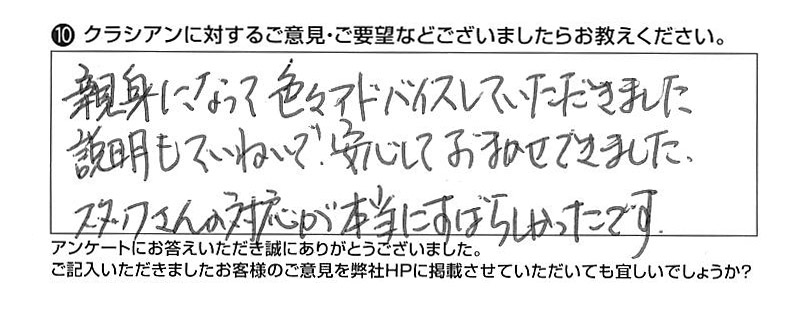 ❿ クラシアンに対するご意見・ご要望などございましたらお教えください。
親身になって色々アドバイスしていただきました
説明もていねいで、安心しておまかせできました、
スタッフさんの対応が本当にすばらしかったです.
アンケートにお答えいただき誠にありがとうございました。
ご記入いただきましたお客様のご意見を弊社HPに掲載させていただいても宜しいでしょうか?